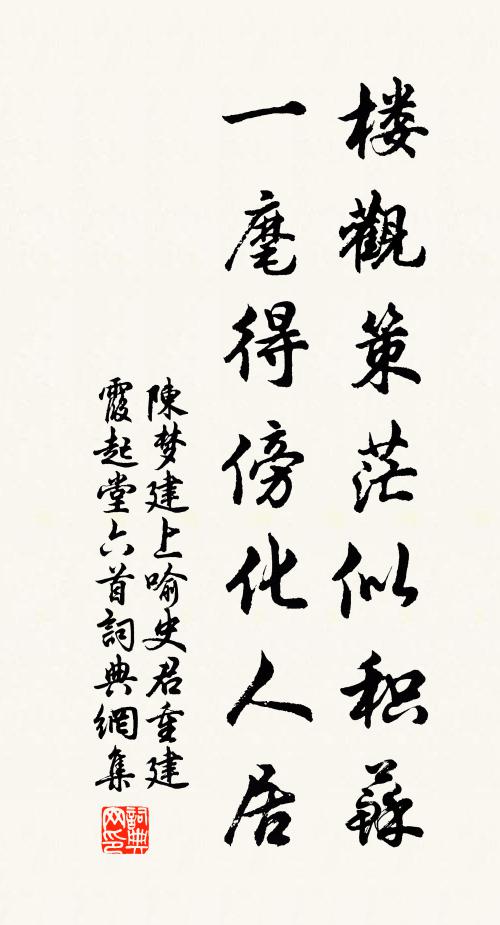 楼觀策茫似积蘇
一麾得傍化人居
陳梦建上喻史君重建
霞起堂六首詞典網集
詞典网印